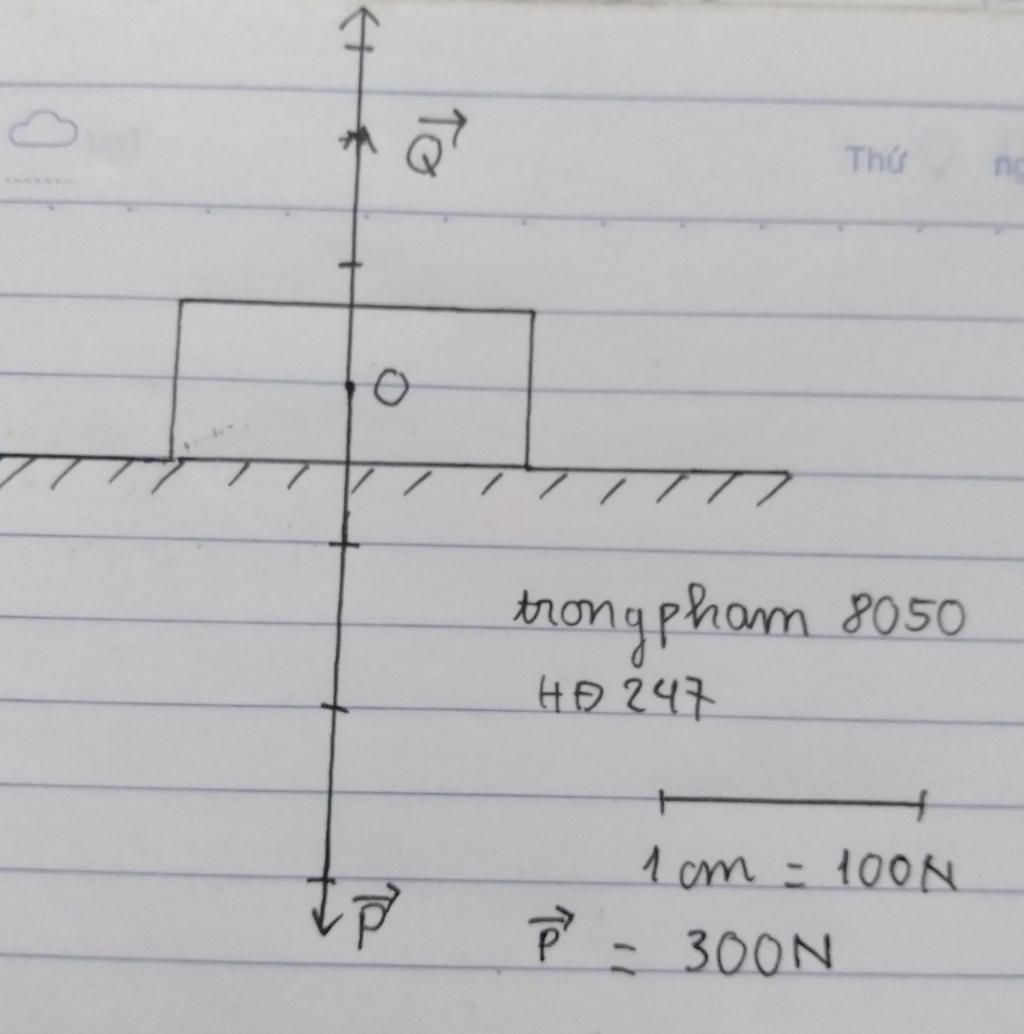 Q
Thứ
O
trongpham 8050
HĐ 247
1 cm = 100N
P
P = 300N